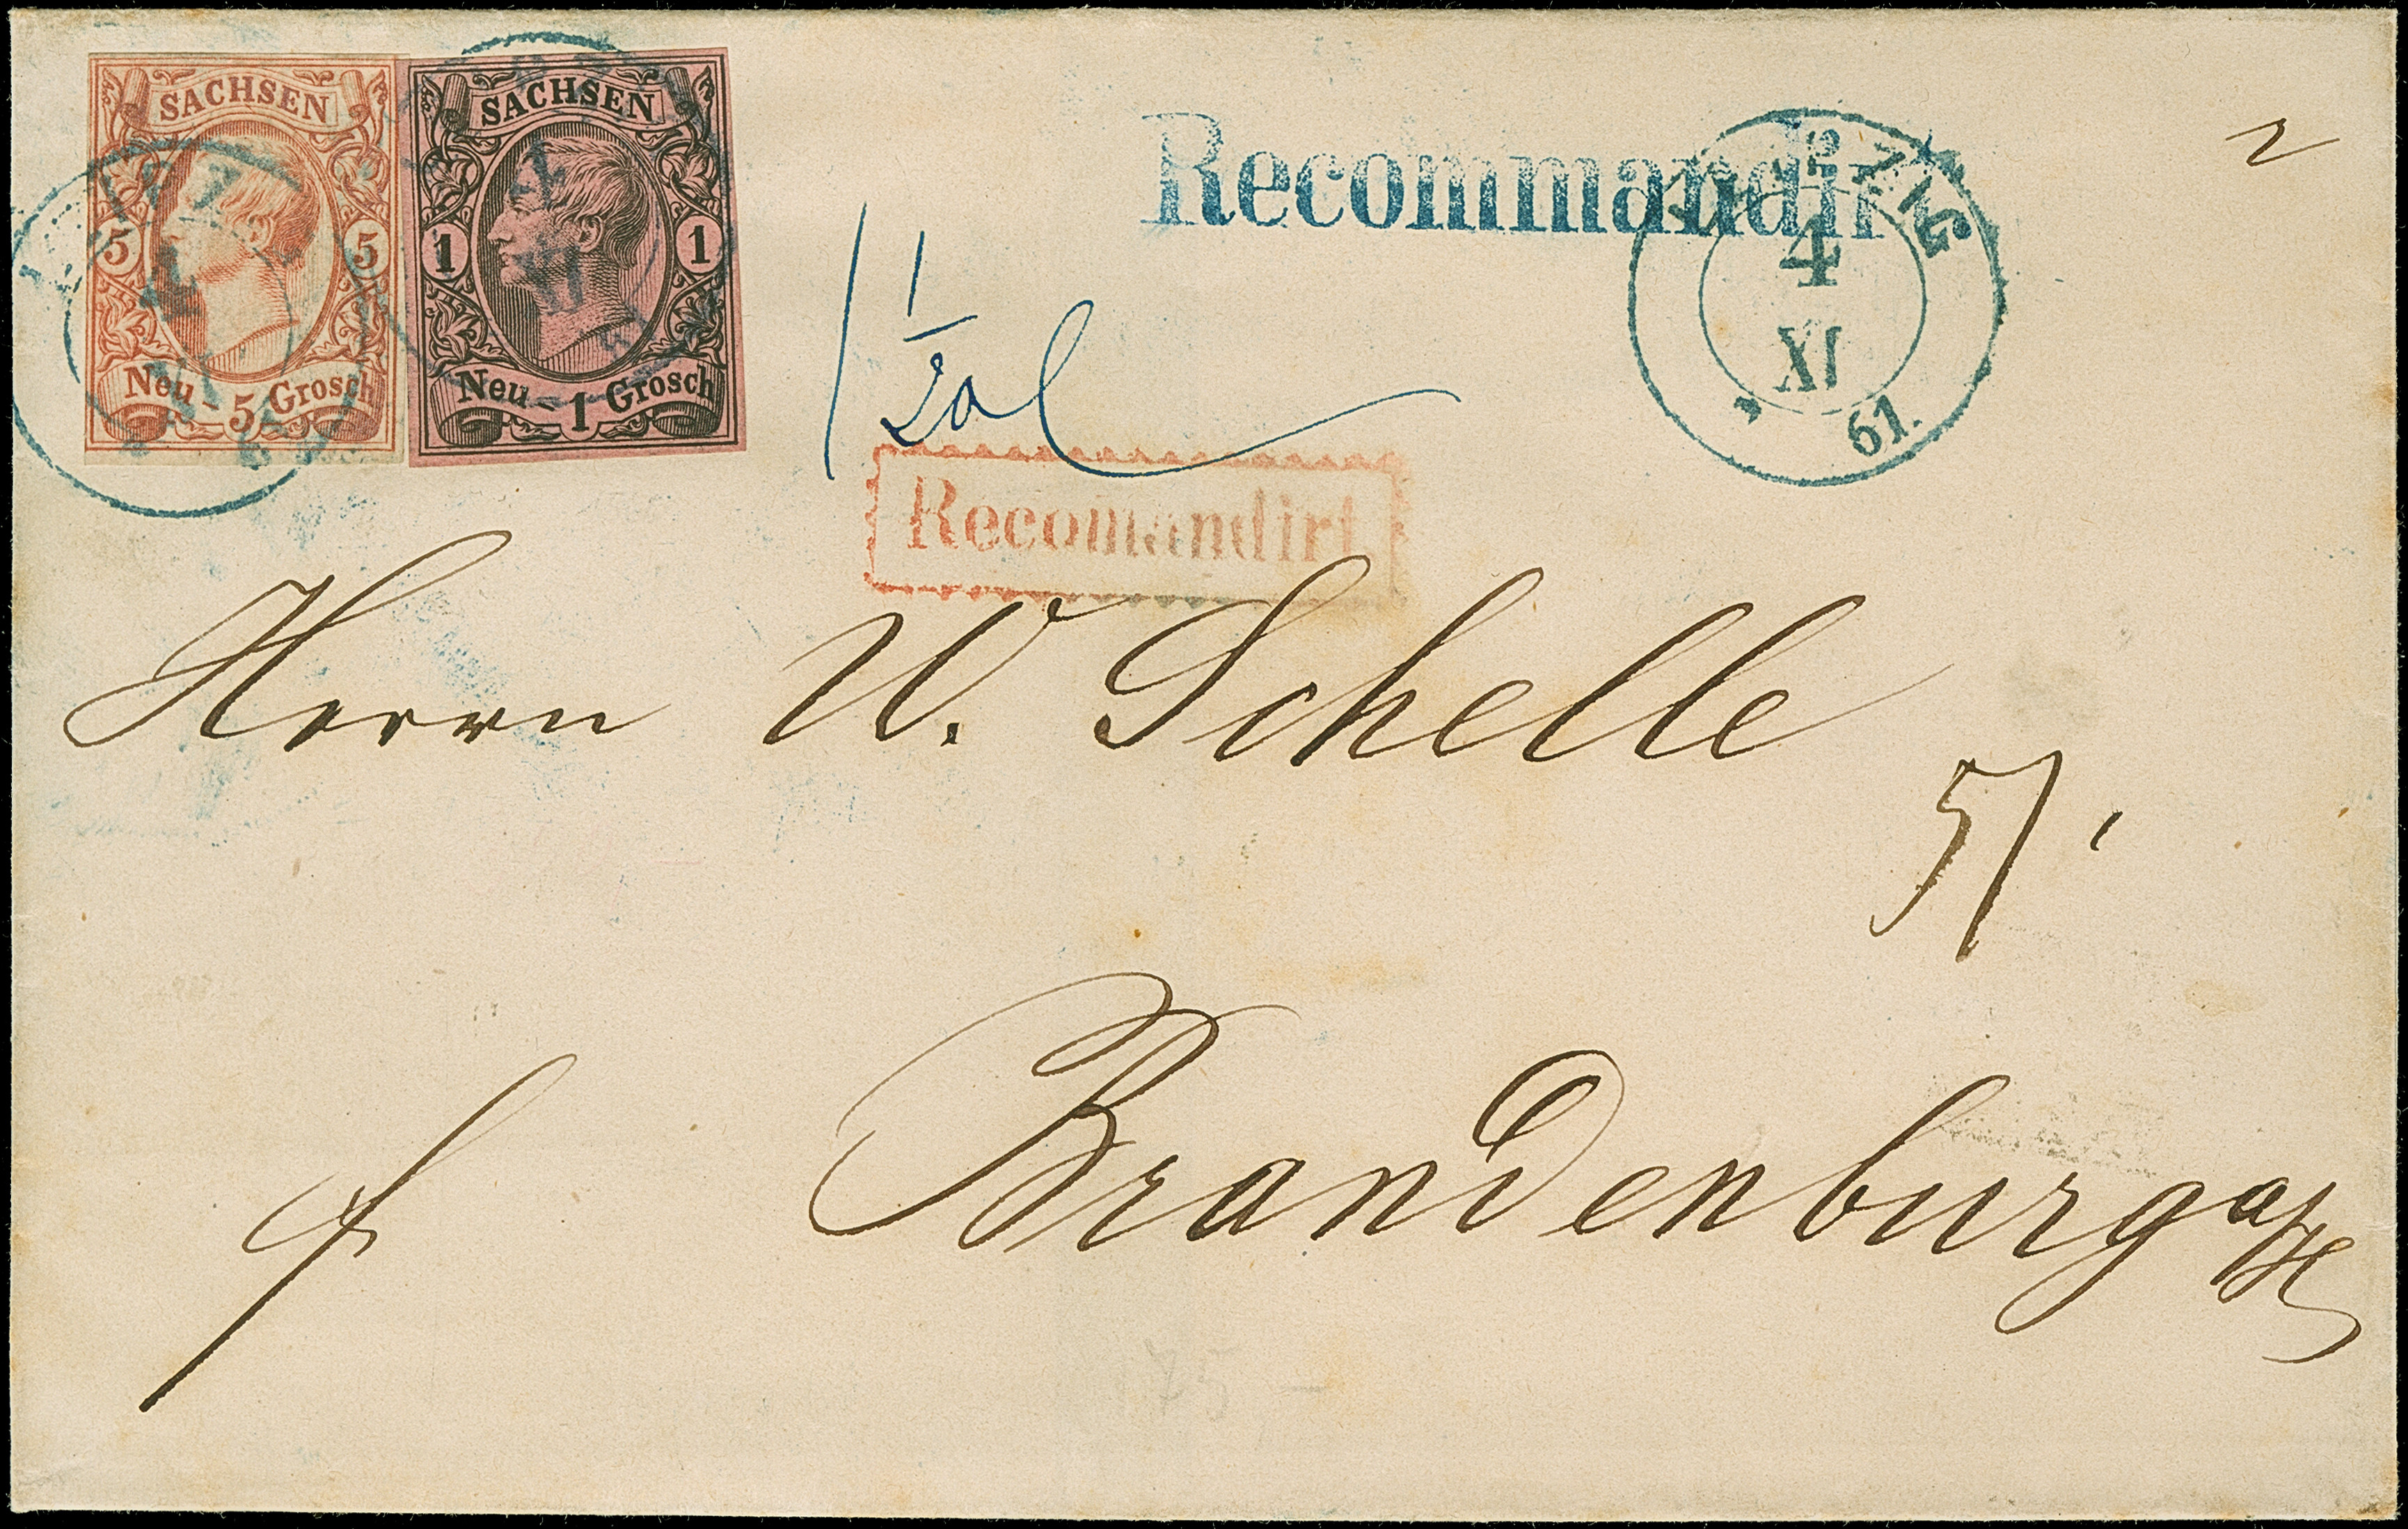 SACHSEN
5 5
Neu-5 Grosch
SACHSEN
1 1
Neu-1 Grosch
Recommandirt
LEIPZIG
4
XI
61.
Recomandirt
Herrn W. Schelle
Brandenburg a/H